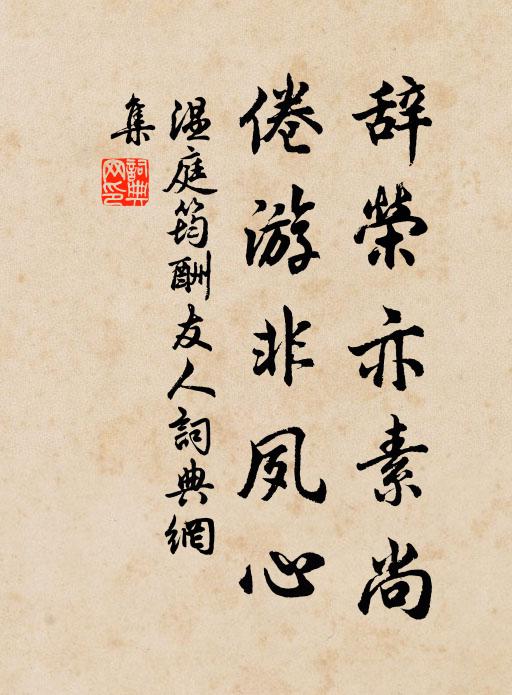 辞榮亦素尚
倦游非夙心
温庭筠酬友人詞典網
集
詞典
网印